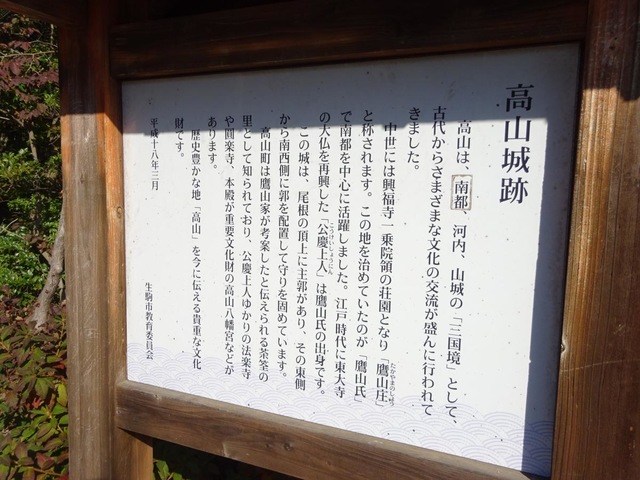 高山城跡
高山は、南都、河内、山城の「三国境」として、
古代からさまざまな文化の交流が盛んに行われて
きました。
中世には興福寺一乗院領の荘園となり「鷹山庄」
と称されます。この地を治めていたのが「鷹山氏」
で南都を中心に活躍しました。江戸時代に東大寺
の大仏を再興した「公慶上人」は鷹山氏の出身です。
この城は、尾根の頂上に主郭があり、その東側
から南西側に郭を配置して守りを固めています。
高山町は鷹山家が考案したと伝えられる茶筌の
里として知られており、公慶上人ゆかりの法楽寺
や圓楽寺、本殿が重要文化財の高山八幡宮などが
あります。
歴史豊かな地「高山」を今に伝える貴重な文化
財です。
平成十八年三月
生駒市教育委員会